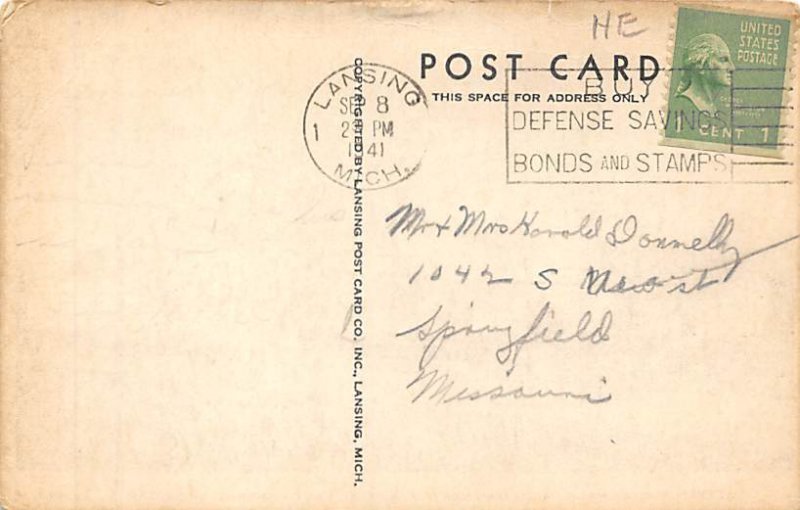 HE
POST CARD
THIS SPACE FOR ADDRESS ONLY
UNITED
STATES
POSTAGE
1 CENT 1
LANSING
SEP 8
PM
1941
MICH.
1
BUY
DEFENSE SAVINGS
BONDS AND STAMPS
COPYRIGHTED BY LANSING POST CARD CO. INC., LANSING, MICH.
Mr & Mrs Harold Donnelly
1042 S st
Springfield
Missouri